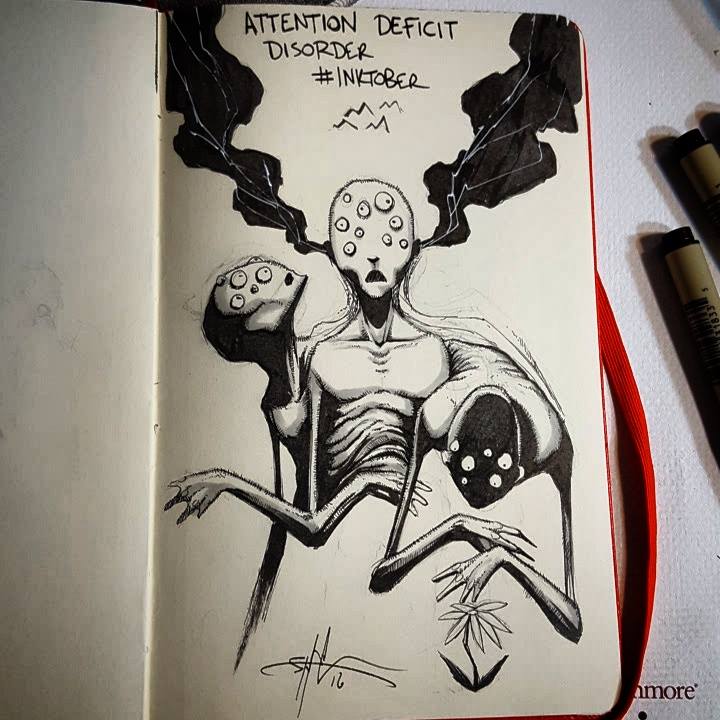 ATTENTION DEFICIT
DISORDER
#INKTOBER
16
nmore®